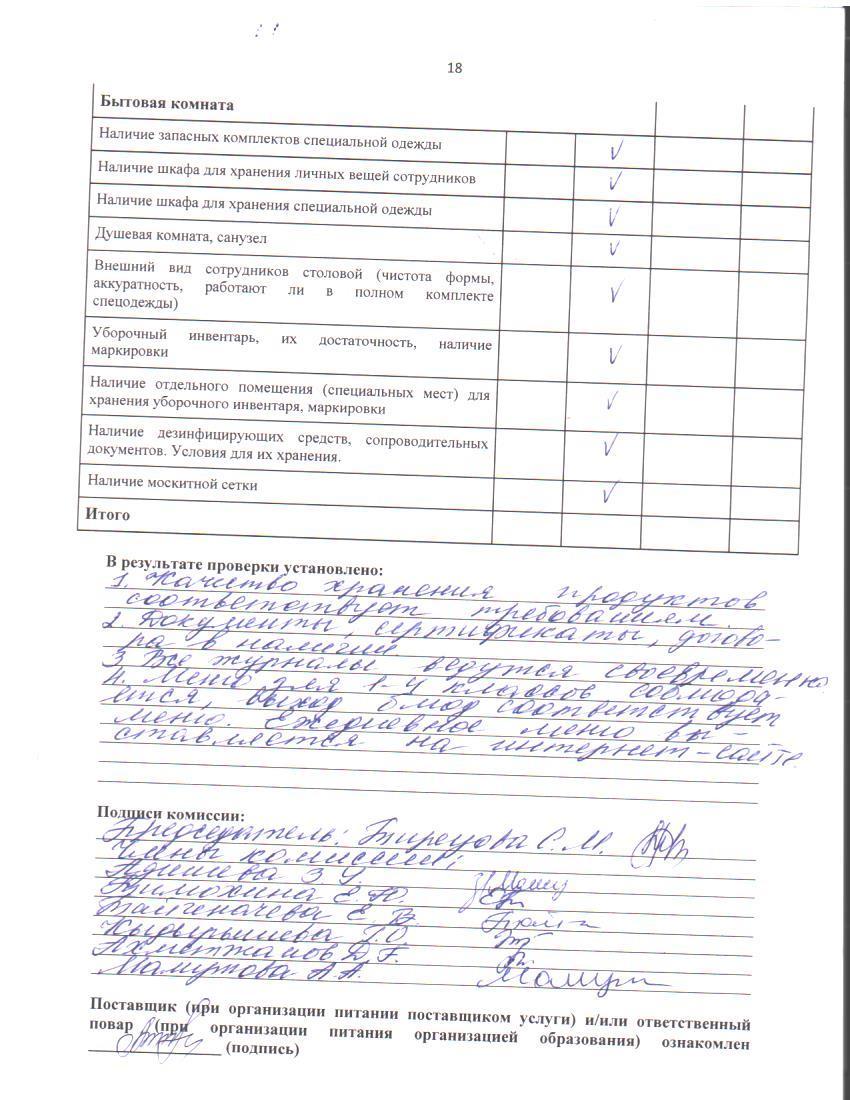 18
Бытовая комната
Наличие запасных комплектов специальной одежды
Наличие шкафа для хранения личных вещей сотрудников
Наличие шкафа для хранения специальной одежды
Душевая комната, санузел
Внешний вид сотрудников столовой (чистота формы,
аккуратность, работают ли в полном комплекте
спецодежды)
Уборочный инвентарь, их достаточность, наличие
маркировки
Наличие отдельного помещения (специальных мест) для
хранения уборочного инвентаря, маркировки
Наличие дезинфицирующих средств, сопроводительных
документов. Условия для их хранения.
Наличие москитной сетки
Итого
В результате проверки установлено:
1. Качество хранения продуктов
соответствует требованиям.
2. Документы, сертификаты, догово-
ра в наличии.
3 Все журналы ведутся своевременно
4. Меню для 1-4 классов соблюда-
ется, выход блюд соответствует
меню. Ежедневное меню вы-
ставляется на интернет-сайте.
Подписи комиссии:
Председатель: С. М.
Члены комиссии:
Тимохина Е.
Е. В.
Ахметжанов Д. Г.
А. А.
Поставщик (при организации питании поставщиком услуги) и/или ответственный
повар (при организации питания организацией образования) ознакомлен
(подпись)